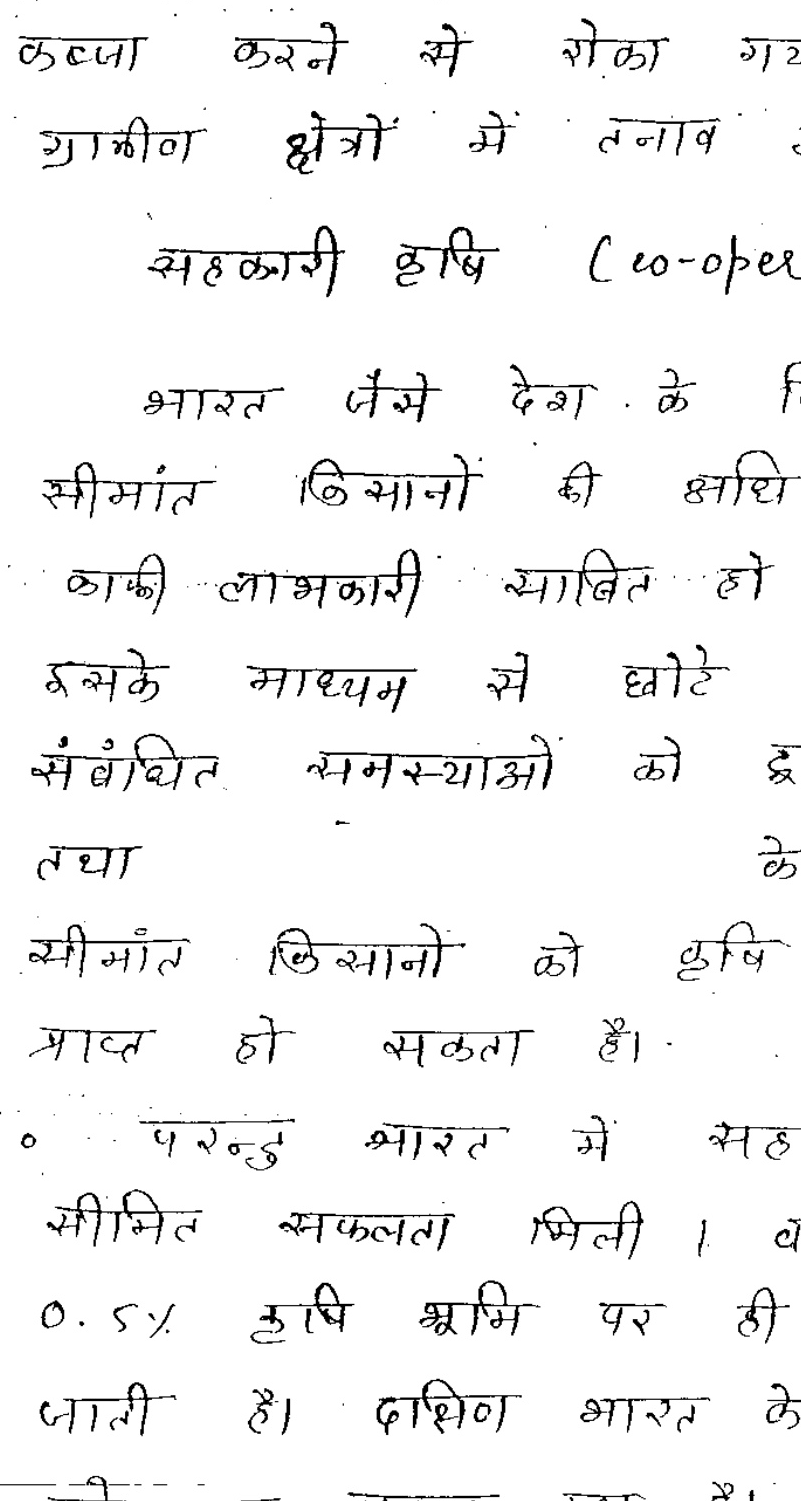 कब्जा करने से रोका
ग्रामीण क्षेत्रों में तनाव
सहकारी कृषि (co-oper
भारत जैसे देश के
सीमांत किसानों की अधि
काफी लाभकारी साबित हो
इसके माध्यम से छोटे
संबंधित समस्याओं को
तथा के
सीमांत किसानों को कृषि
प्राप्त हो सकता है।
परन्तु भारत में सह
सीमित सफलता मिली ।
0.5% कृषि भूमि पर ही
जाती है। दक्षिण भारत के